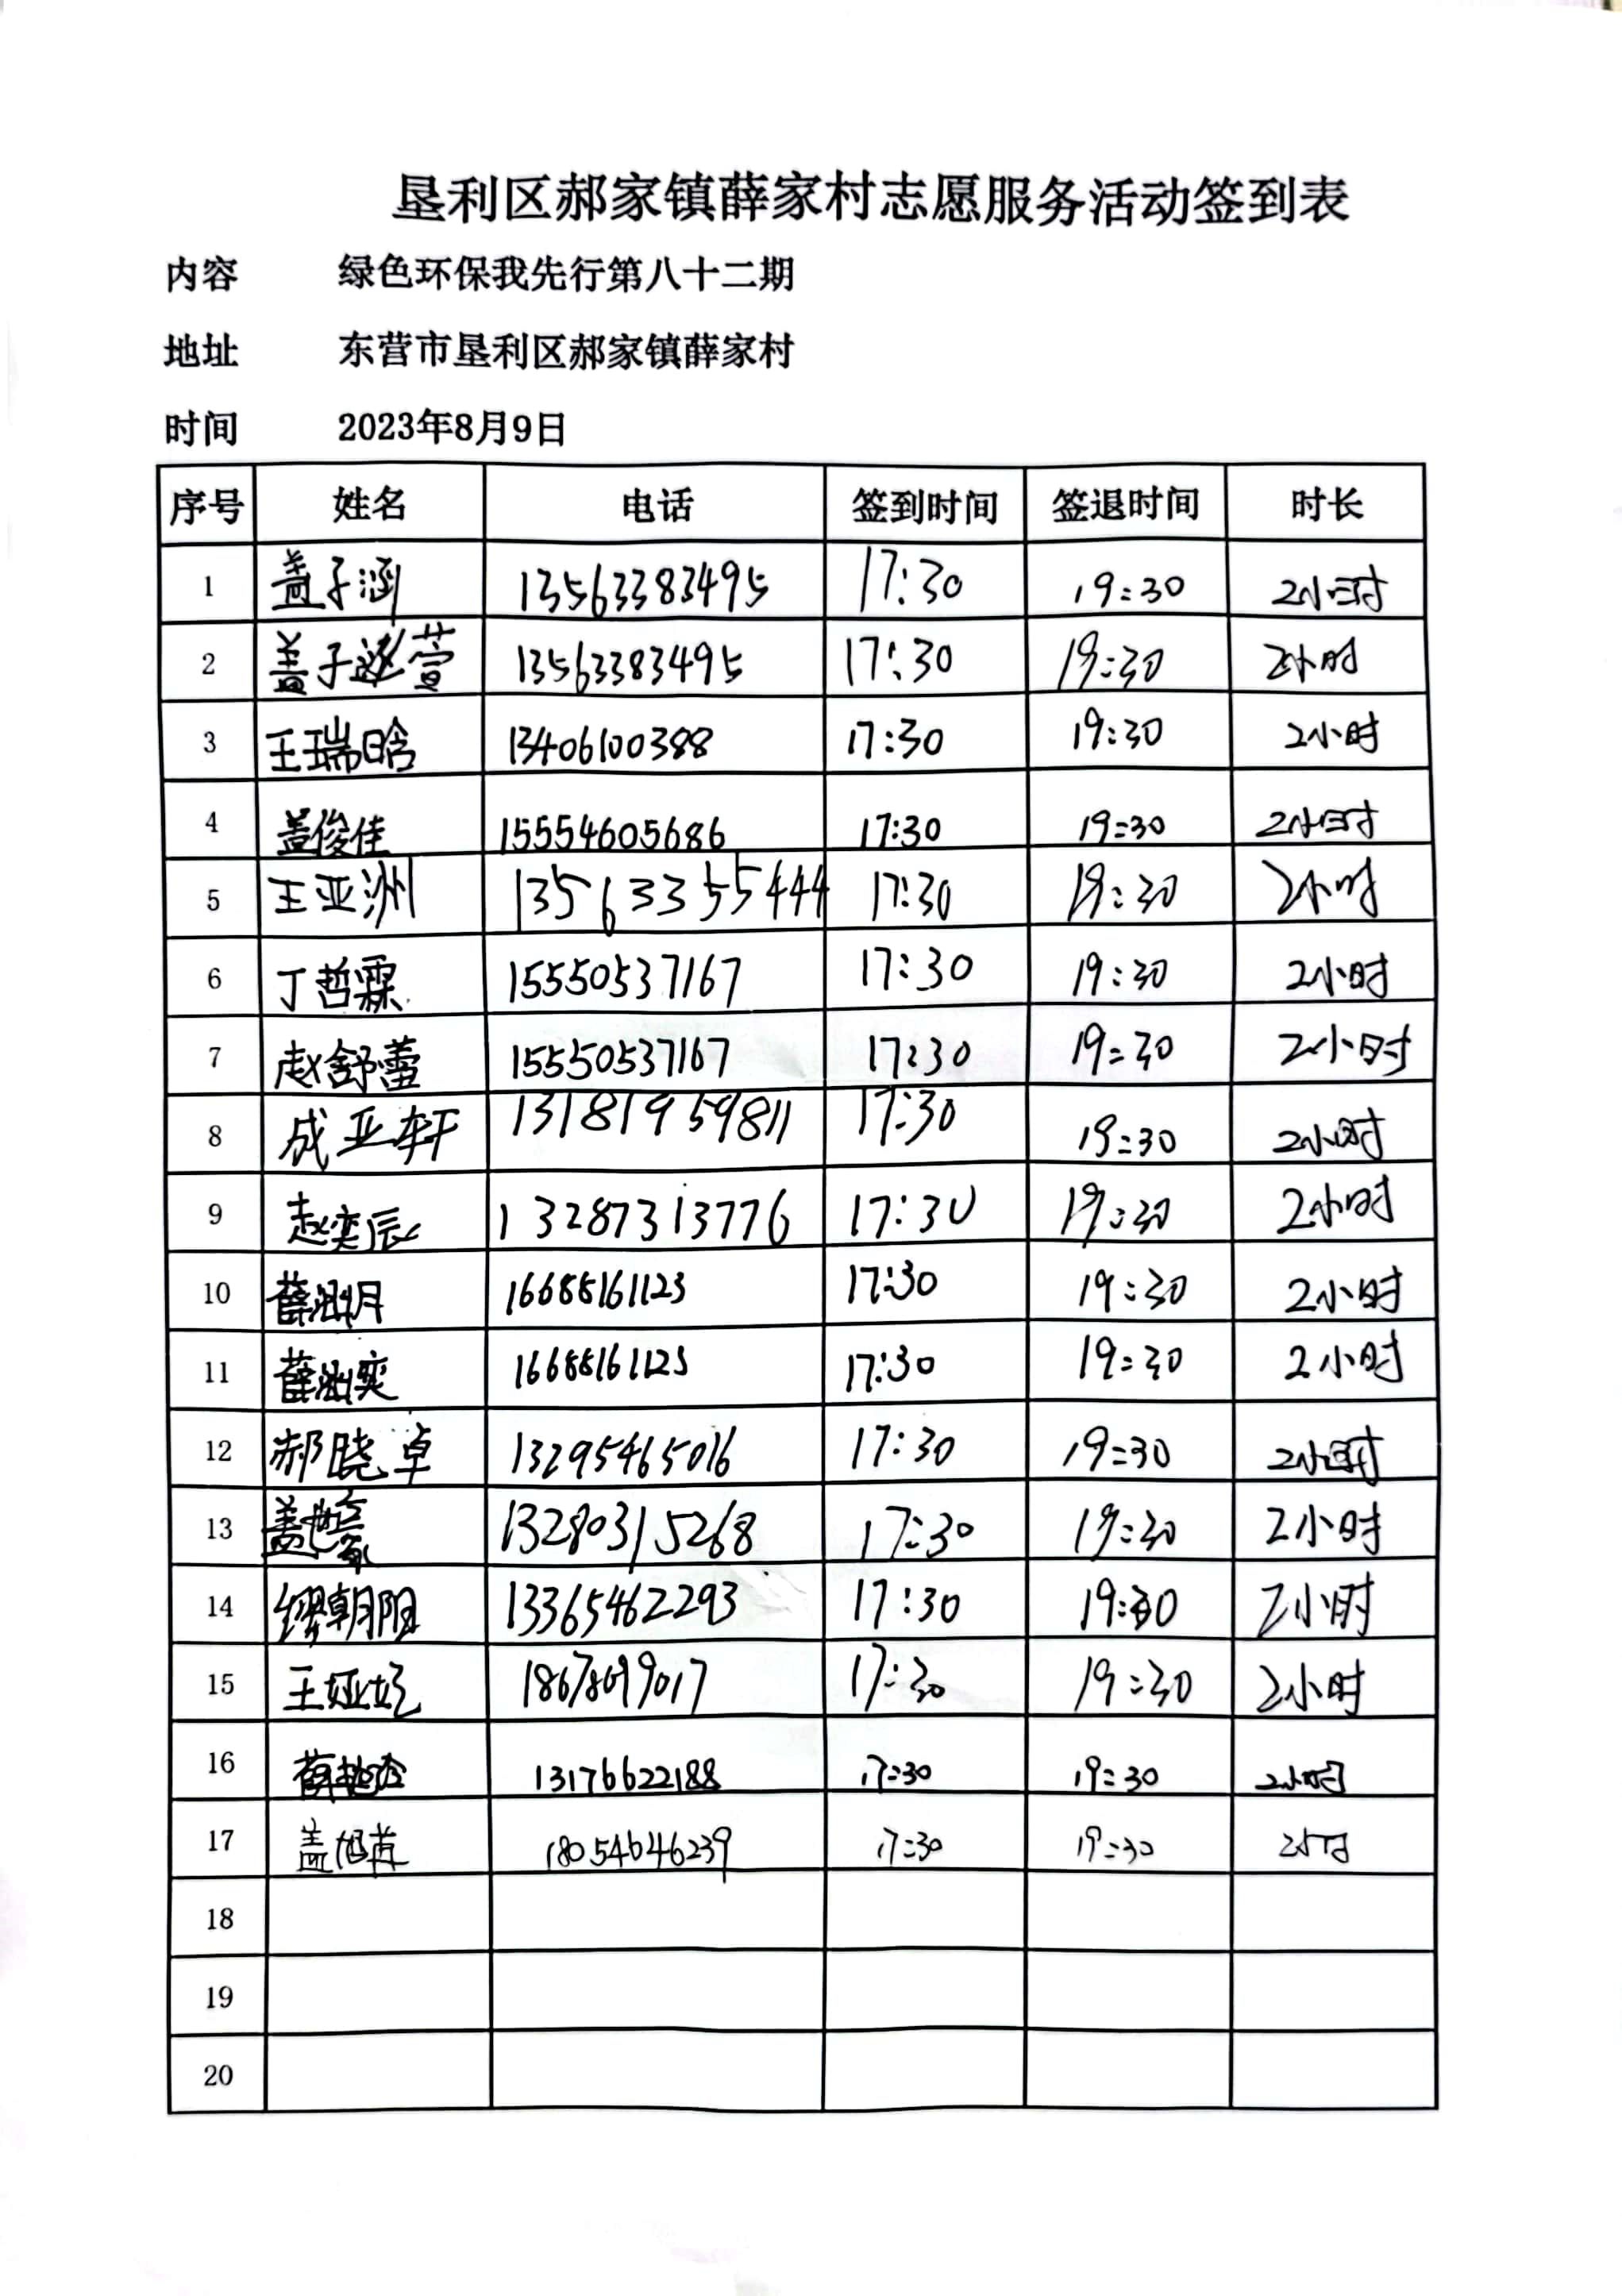 垦利区郝家镇薛家村志愿服务活动签到表
内容 绿色环保我先行第八十二期
地址 东营市垦利区郝家镇薛家村
时间 2023年8月9日
序号 姓名 电话 签到时间 签退时间 时长
1 盖子涵 13563383495 17:30 19:30 2小时
2 盖子萱 13563383495 17:30 19:30 2小时
3 王瑞晗 13406100388 17:30 19:30 2小时
4 盖俊佳 15554605686 17:30 19:30 2小时
5 王亚洲 13563355444 17:30 19:30 2小时
6 丁哲霖 15550537167 17:30 19:30 2小时
7 赵舒蕾 15550537167 17:30 19:30 2小时
8 成亚轩 13181959811 17:30 19:30 2小时
9 赵奕辰 13287313776 17:30 19:30 2小时
10 薛涵月 16688161123 17:30 19:30 2小时
11 薛涵奕 16688161123 17:30 19:30 2小时
12 郝晓卓 13295465016 17:30 19:30 2小时
13 盖 13280315268 17:30 19:30 2小时
14 缪朝阳 13365462293 17:30 19:30 2小时
15 王娅 18678699017 17:30 19:30 2小时
16 薛 13176622188 17:30 19:30 2小时
17 盖旭 18054646239 17:30 19:30
18
19
20